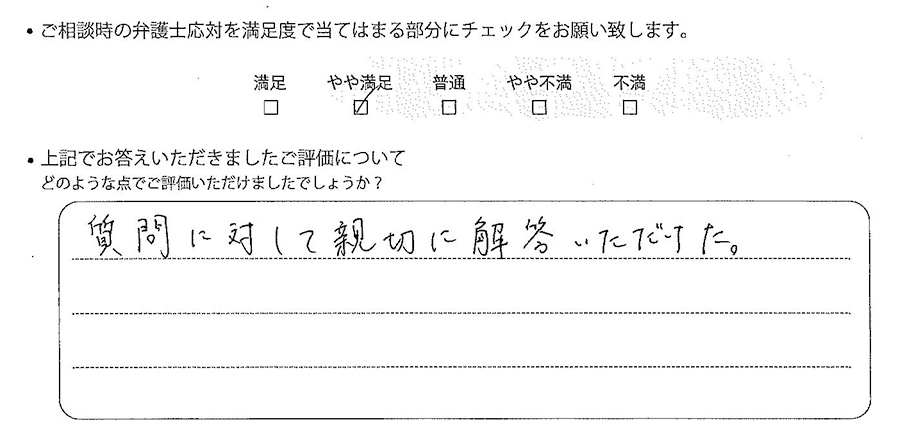 ・ご相談時の弁護士応対を満足度で当てはまる部分にチェックをお願い致します。
満足 やや満足 普通 やや不満 不満
□ ☑ □ □ □
・上記でお答えいただきましたご評価について
どのような点でご評価いただけましたでしょうか？
質問に対して親切に解答いただけた。